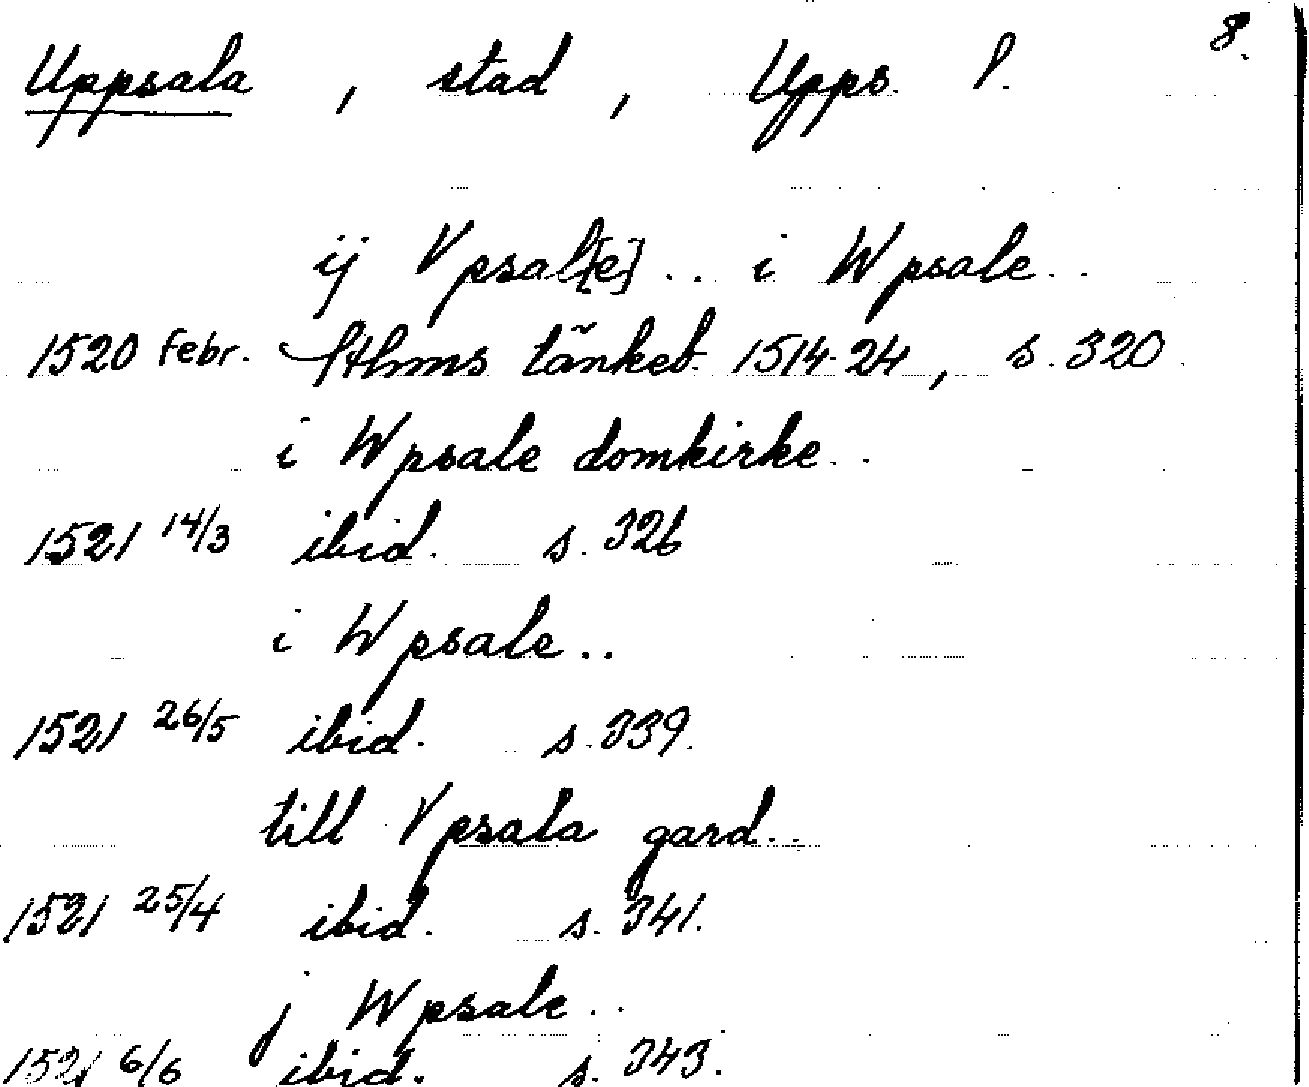 8.
Uppsala, stad, Upps. l.
ij Vpsal[e] .. i Wpsale ..
1520 febr. Sthms tänkeb. 1514-24, s. 320
i Wpsale domkirke ..
1521 14/3 ibid. s. 326
i Wpsale ..
1521 26/5 ibid. s. 339.
till Vpsala gard ..
1521 25/4 ibid. s. 341.
j Wpsale ..
1521 6/6 ibid. s. 343.